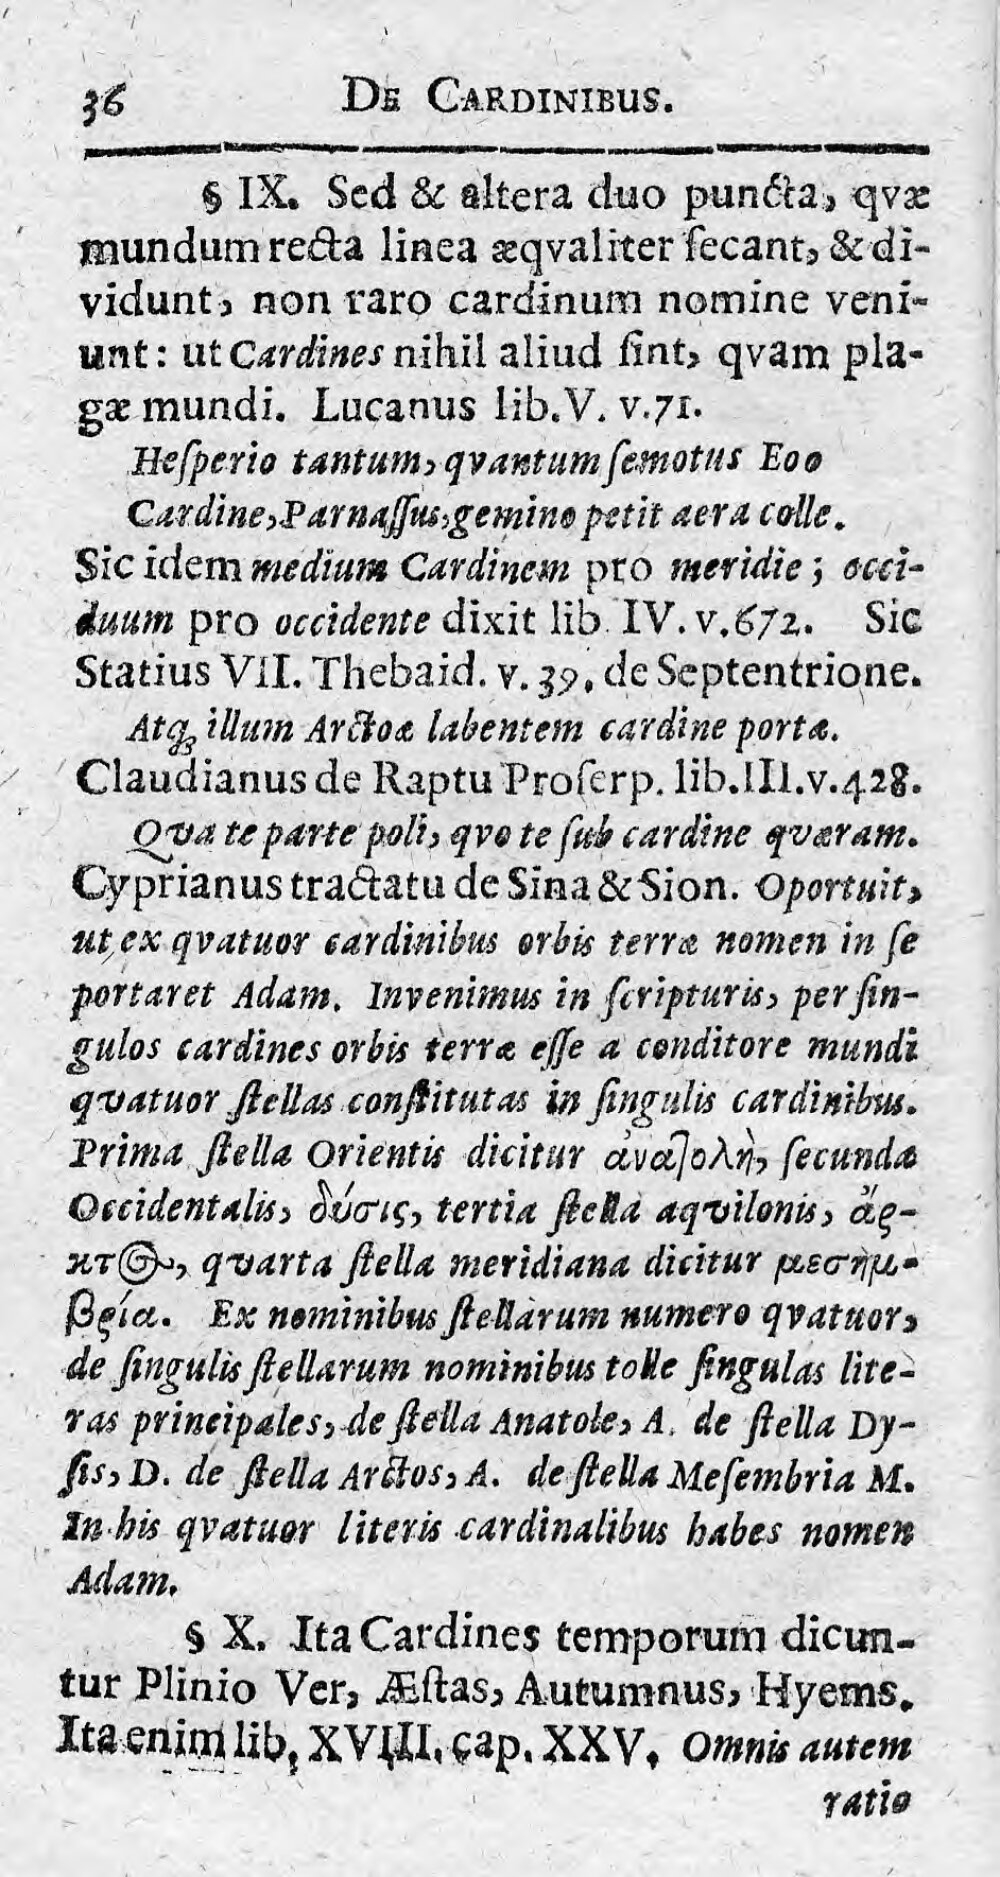 36 DE CARDINIBUS.
§ IX. Sed & altera duo puncta, qvæ
mundum recta linea æqvaliter ſecant, & di-
vidunt, non raro cardinum nomine veni-
unt: ut Cardines nihil aliud ſint, qvam pla-
gæ mundi. Lucanus lib. V. v. 71.
Heſperio tantum, qvantum ſemotus Eoo
Cardine, Parnaſſus, gemino petit aera colle.
Sic idem medium Cardinem pro meridie; occi-
duum pro occidente dixit lib IV. v. 672. Sic
Statius VII. Thebaid. v. 39. de Septentrione.
Atq; illum Arctoæ labentem cardine portæ.
Claudianus de Raptu Proſerp. lib. III. v. 428.
Qva te parte poli, qvo te ſub cardine qværam.
Cyprianus tractatu de Sina & Sion. Oportuit,
ut ex qvatuor cardinibus orbis terræ nomen in ſe
portaret Adam. Invenimus in ſcripturis, per ſin-
gulos cardines orbis terræ eſſe a conditore mundi
qvatuor ſtellas conſtitutas in ſingulis cardinibus.
Prima ſtella Orientis dicitur ἀνατολὴ, ſecunda
Occidentalis, δύσις, tertia ſtella aqvilonis, ἄρ-
κτος, qvarta ſtella meridiana dicitur μεσημ-
βρία. Ex nominibus ſtellarum numero qvatuor,
de ſingulis ſtellarum nominibus tolle ſingulas lite-
ras principales, de ſtella Anatole, A. de ſtella Dy-
ſis, D. de ſtella Arctos, A. de ſtella Meſembria M.
In his qvatuor literis cardinalibus habes nomen
Adam.
§ X. Ita Cardines temporum dicun-
tur Plinio Ver, Æſtas, Autumnus, Hyems.
Ita enim lib. XVIII. cap. XXV. Omnis autem
ratio